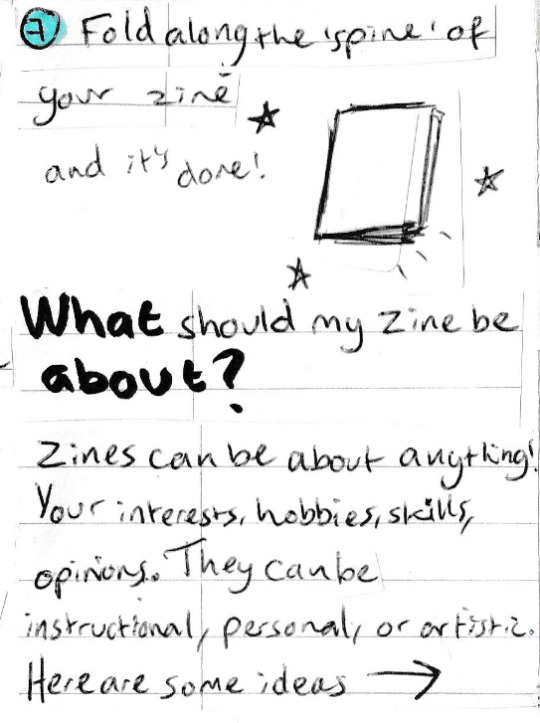 7 Fold along the 'spine' of
your zine
and it's done!
What should my zine be
about?
Zines can be about anything!
Your interests, hobbies, skills,
opinions. They can be
instructional, personal, or artistic.
Here are some ideas →